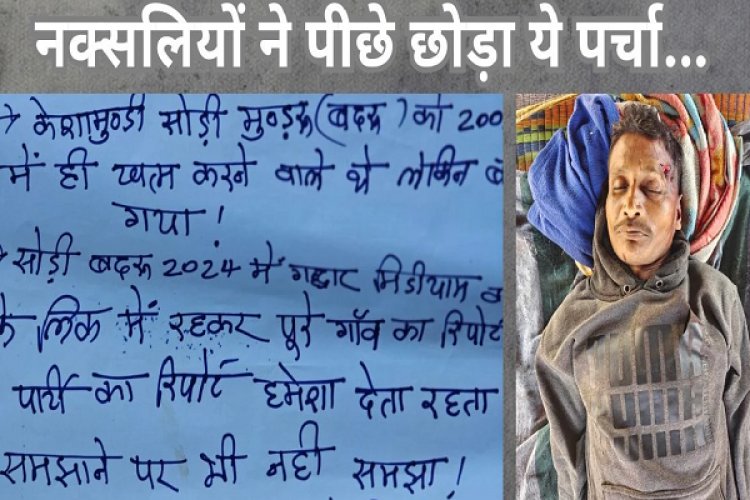 नक्सलियों ने पीछे छोड़ा ये पर्चा...
→ केशामुण्डी सोड़ी मुण्ड़रू (बदरू) को 200
में ही खत्म करने वाले थे लेकिन
गया!
→ सोड़ी बदरू 2024 में गद्दार मिडीयाम
के लिंक में रहकर पूरे गाँव का रिपोर्ट
पार्टी का रिपोर्ट हमेशा देता रहता
समझाने पर भी नहीं समझा!